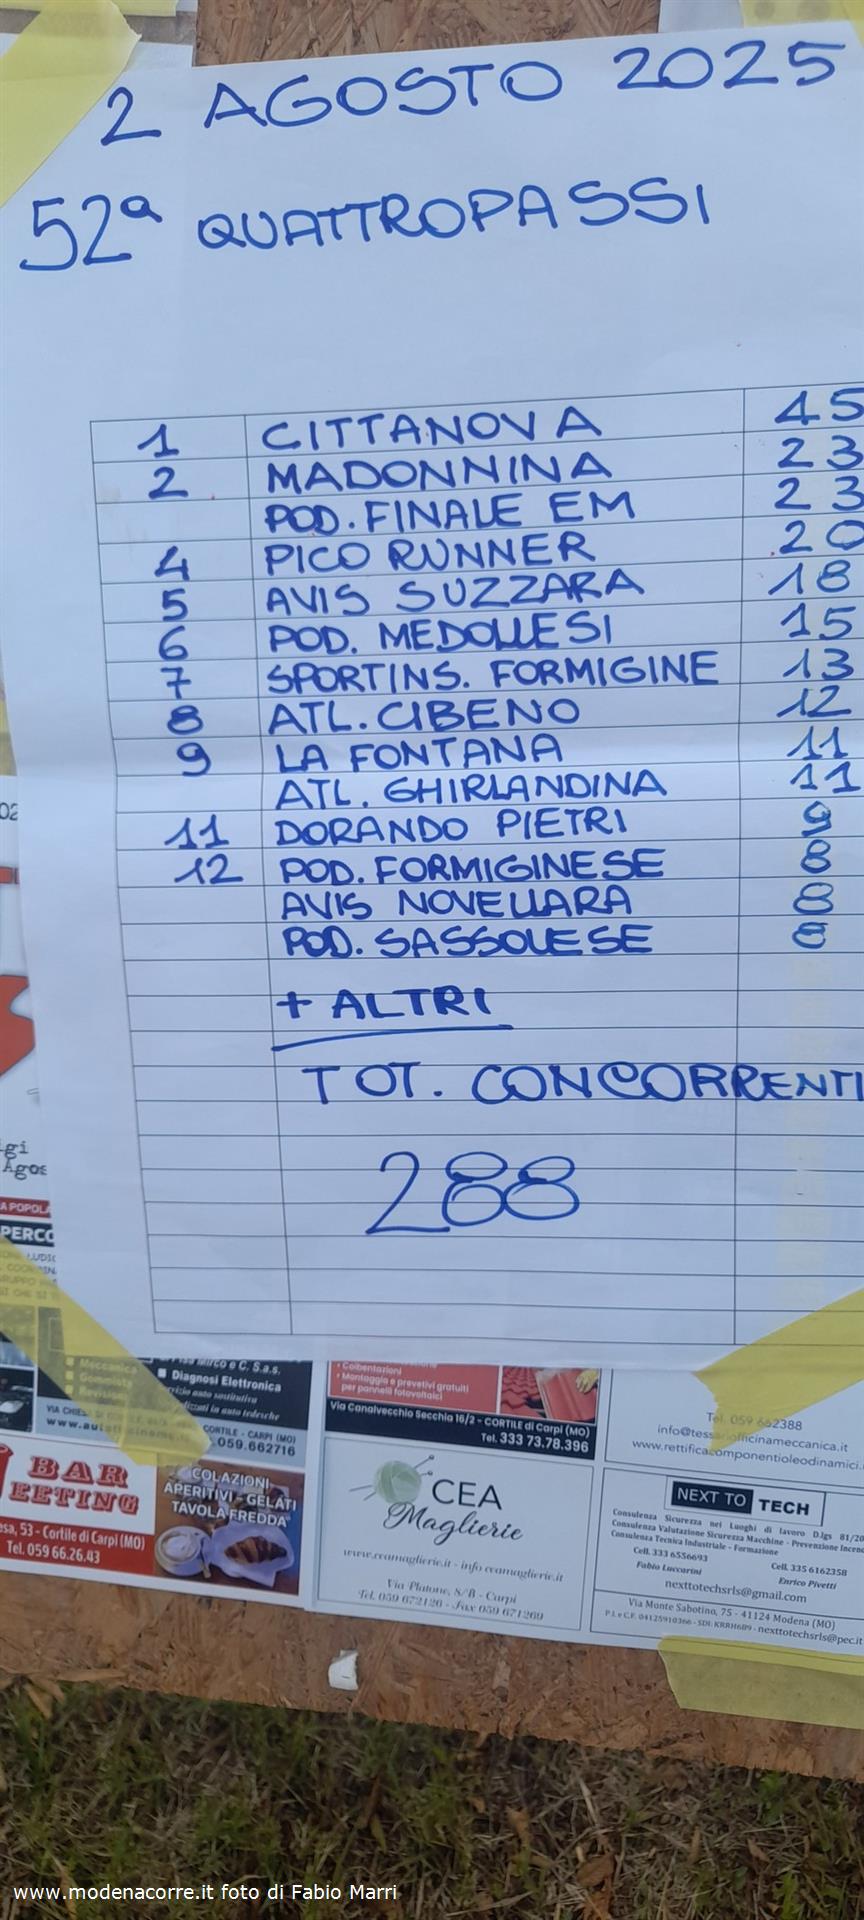 2 AGOSTO 2025
52ª QUATTROPASSI
1 CITTANOVA 45
2 MADONNINA 23
POD. FINALE EM 23
4 PICO RUNNER 20
5 AVIS SUZZARA 18
6 POD. MEDOLLESI 15
7 SPORTINS. FORMIGINE 13
8 ATL. CIBENO 12
9 LA FONTANA 11
ATL. GHIRLANDINA 11
11 DORANDO PIETRI 9
12 POD. FORMIGINESE 8
AVIS NOVELLARA 8
POD. SASSOLESE 8
+ ALTRI
TOT. CONCORRENTI
288
Agos
A POPOLA
PERCO
Mirco e C. S.a.s.
Meccanica
Gommista
Diagnosi Elettronica
auto sostitutiva
in auto tedesche
CORTILE - CARPI (MO)
059.662716
Coibentazioni
Montaggio e prevetivi gratuiti
per pannelli fotovoltaici
Via Canalvecchio Secchia 16/2 - CORTILE di Carpi (MO)
Tel. 333 73.78.396
Tel. 059 662388
www.rettificacomponentioleodinamici.
BAR
EETING
esa, 53 - Cortile di Carpi (MO)
Tel. 059 66.26.43
COLAZIONI
APERITIVI - GELATI
TAVOLA FREDDA
CEA
Maglierie
www.ceamaglierie.it - info ceamaglierie.it
Via Platone, 8/B - Carpi
Tel. 059 672126 - Fax 059 671269
NEXT TO TECH
Consulenza Sicurezza nei Luoghi di lavoro D.lgs 81/20
Consulenza Valutazione Sicurezza Macchine - Prevenzione Incen
Consulenza Tecnica Industriale - Formazione
Cell. 333 6556693 Cell. 335 6162358
Fabio Luccarini Enrico Pivetti
nexttotechsrls@gmail.com
Via Monte Sabotino, 75 - 41124 Modena (MO)
P.I. e C.F. 04125910366 - SDI: KRRH6B9 - nexttotechsrls@pec.it
www.modenacorre.it foto di Fabio Marri